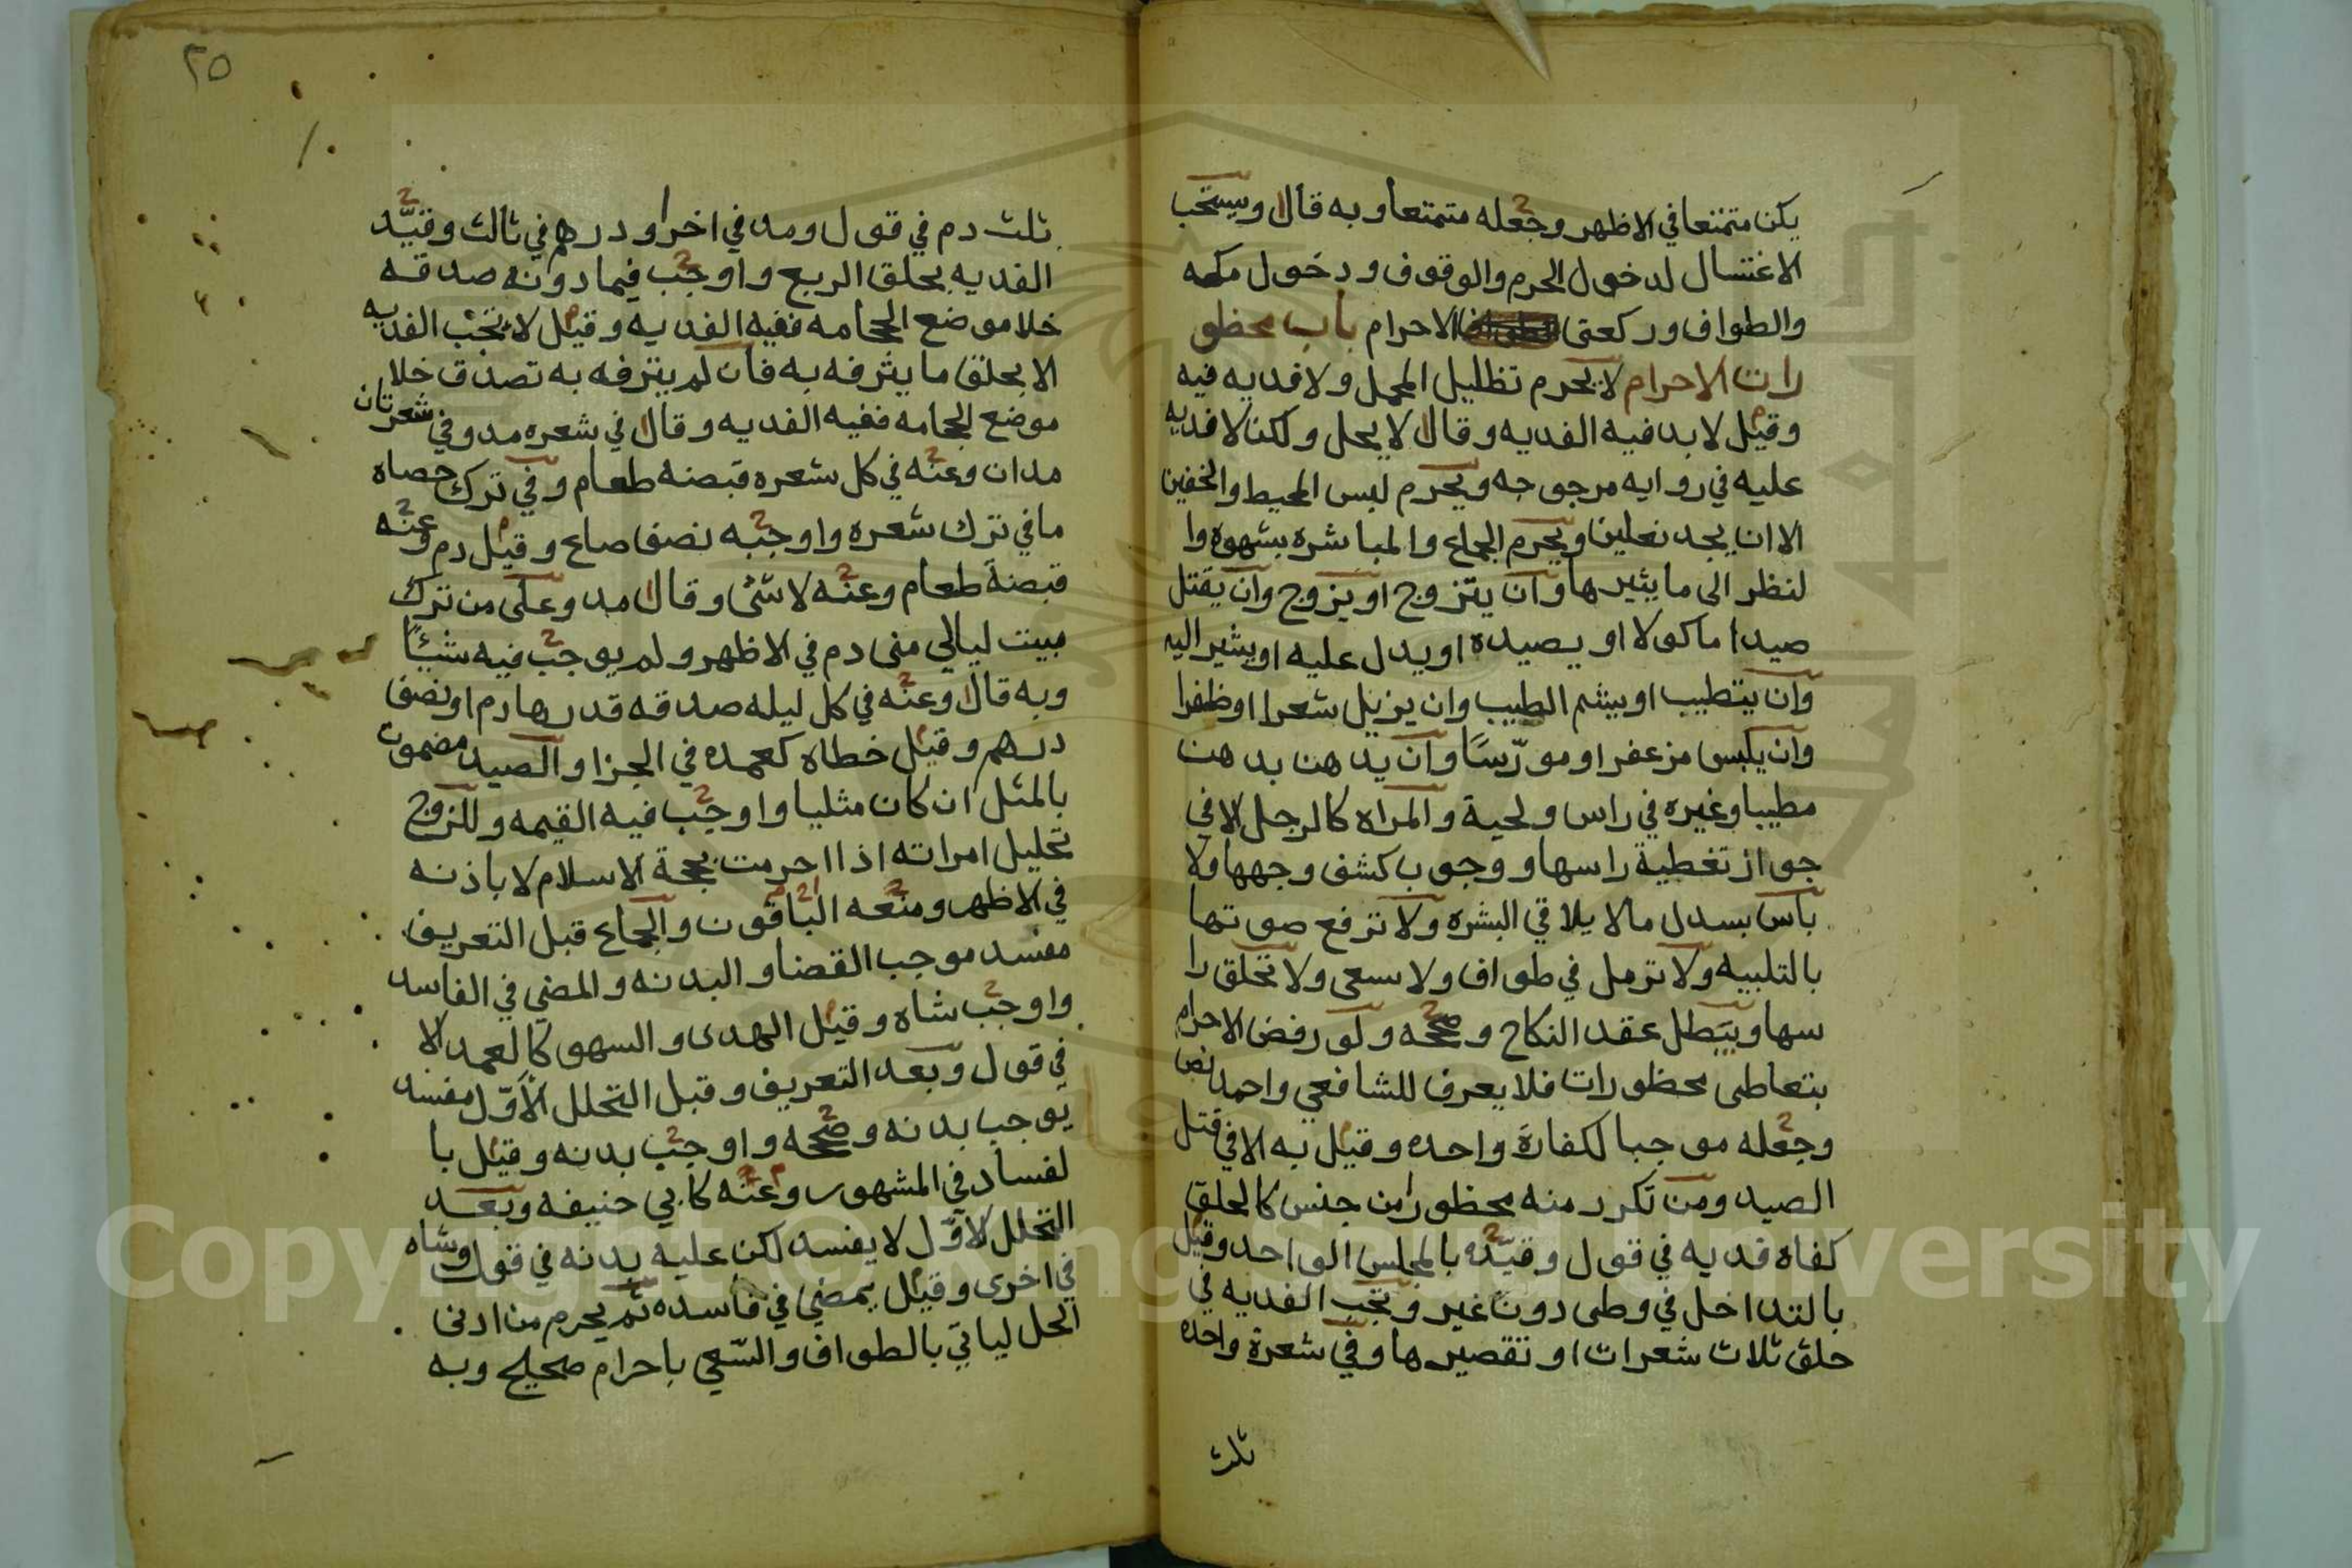 يكن متمتعا في الاظهر وجعله متمتعا وبه قال ا ويستحب
الاغتسال لدخول الحرم والوقوف ودخول مكه
والطواف وركعتى الاحرام باب محظو
رات الاحرام لا يحرم تظليل المحمل ولا فديه فيه
وقيل لا بد فيه الفديه وقال ا لا يحل ولكن لا فديه
عليه في روايه مرجوحه ويحرم لبس المحيط والخفين
الا ان يجد نعلين ويحرم الجماع والمباشره بشهوه وا
لنظر الى ما يثيرها وان يتزوج او يزوج وان يقتل
صيدا ماكولا او يصيده او يدل عليه او يشير اليه
وان يتطيب او يشم الطيب وان يزيل شعرا او ظفرا
وان يلبس مزعفرا ومورّسًا وان يدهن بدهن
مطيبا وغيره في راس ولحية والمراه كالرجل الا في
جواز تغطية راسها ووجوب كشف وجهها ولا
باس بسدل مالا يلاقي البشره ولا ترفع صوتها
بالتلبيه ولا ترمل في طواف ولا سعى ولا تحلق را
سها ويبطل عقد النكاح وصححه ولو رفض الاحرام
بتعاطى محظورات فلا يعرف للشافعي واحمد نص
وجعله موجبا لكفارة واحده وقيل به الا في قتل
الصيد ومن تكرر منه محظور من جنس كالحلق
كفاه فديه في قول وقيّده بالمجلس الواحد وقيل
بالتداخل في وطى دون غير وتجب الفديه في
حلق ثلاث شعرات او تقصيرها وفي شعرة واحده
ثلث
٢٥
ثلث دم في قول ومد في اخر او درهم في ثالث وقيّد
الفديه بحلق الربع واوجب فيما دونه صدقه
خلا موضع الحجامه ففيه الفديه وقيل لا تجب الفديه
الا بحلق ما يترفه به فان لم يترفه به تصدق خلا
موضع الحجامه ففيه الفديه وقال ا في شعره مد وفي شعرتان
مدان وعنه في كل شعره قبضه طعام وفي ترك حصاه
ما في ترك شعره واوجبه نصف صاع وقيل دم وعنه
قبضة طعام وعنه لا شئ وقال ا مد وعلى من ترك
مبيت ليالي منى دم في الاظهر ولم يوجب فيه شيئًا
وبه قال ا وعنه في كل ليله صدقه قدرها درهم او نصف
درهم وقيل خطاه كعمده في الجزا والصيد مضمون
بالمثل ان كان مثليا واوجب فيه القيمه وللزوج
تحليل امراته اذا احرمت بحجة الاسلام لا باذنه
في الاظهر ومنعه الباقون والجماع قبل التعريف
مفسد موجب القضا والبدنه والمضي في الفاسد
واوجب شاه وقيل الهدى والسهو كالعمد الا
في قول وبعد التعريف وقبل التحلل الاوّل مفسد
يوجب بدنه وصححه واوجب بدنه وقيل با
لفساد في المشهور وعنه كابي حنيفه وبعد
التحلل الاوّل لا يفسد لكن عليه بدنه في قول وشاه
في اخرى وقيل يمضي في فاسده ثم يحرم من ادنى
الحل لياتي بالطواف والسّعي باحرام صحيح وبه
Copyright © King Saud University